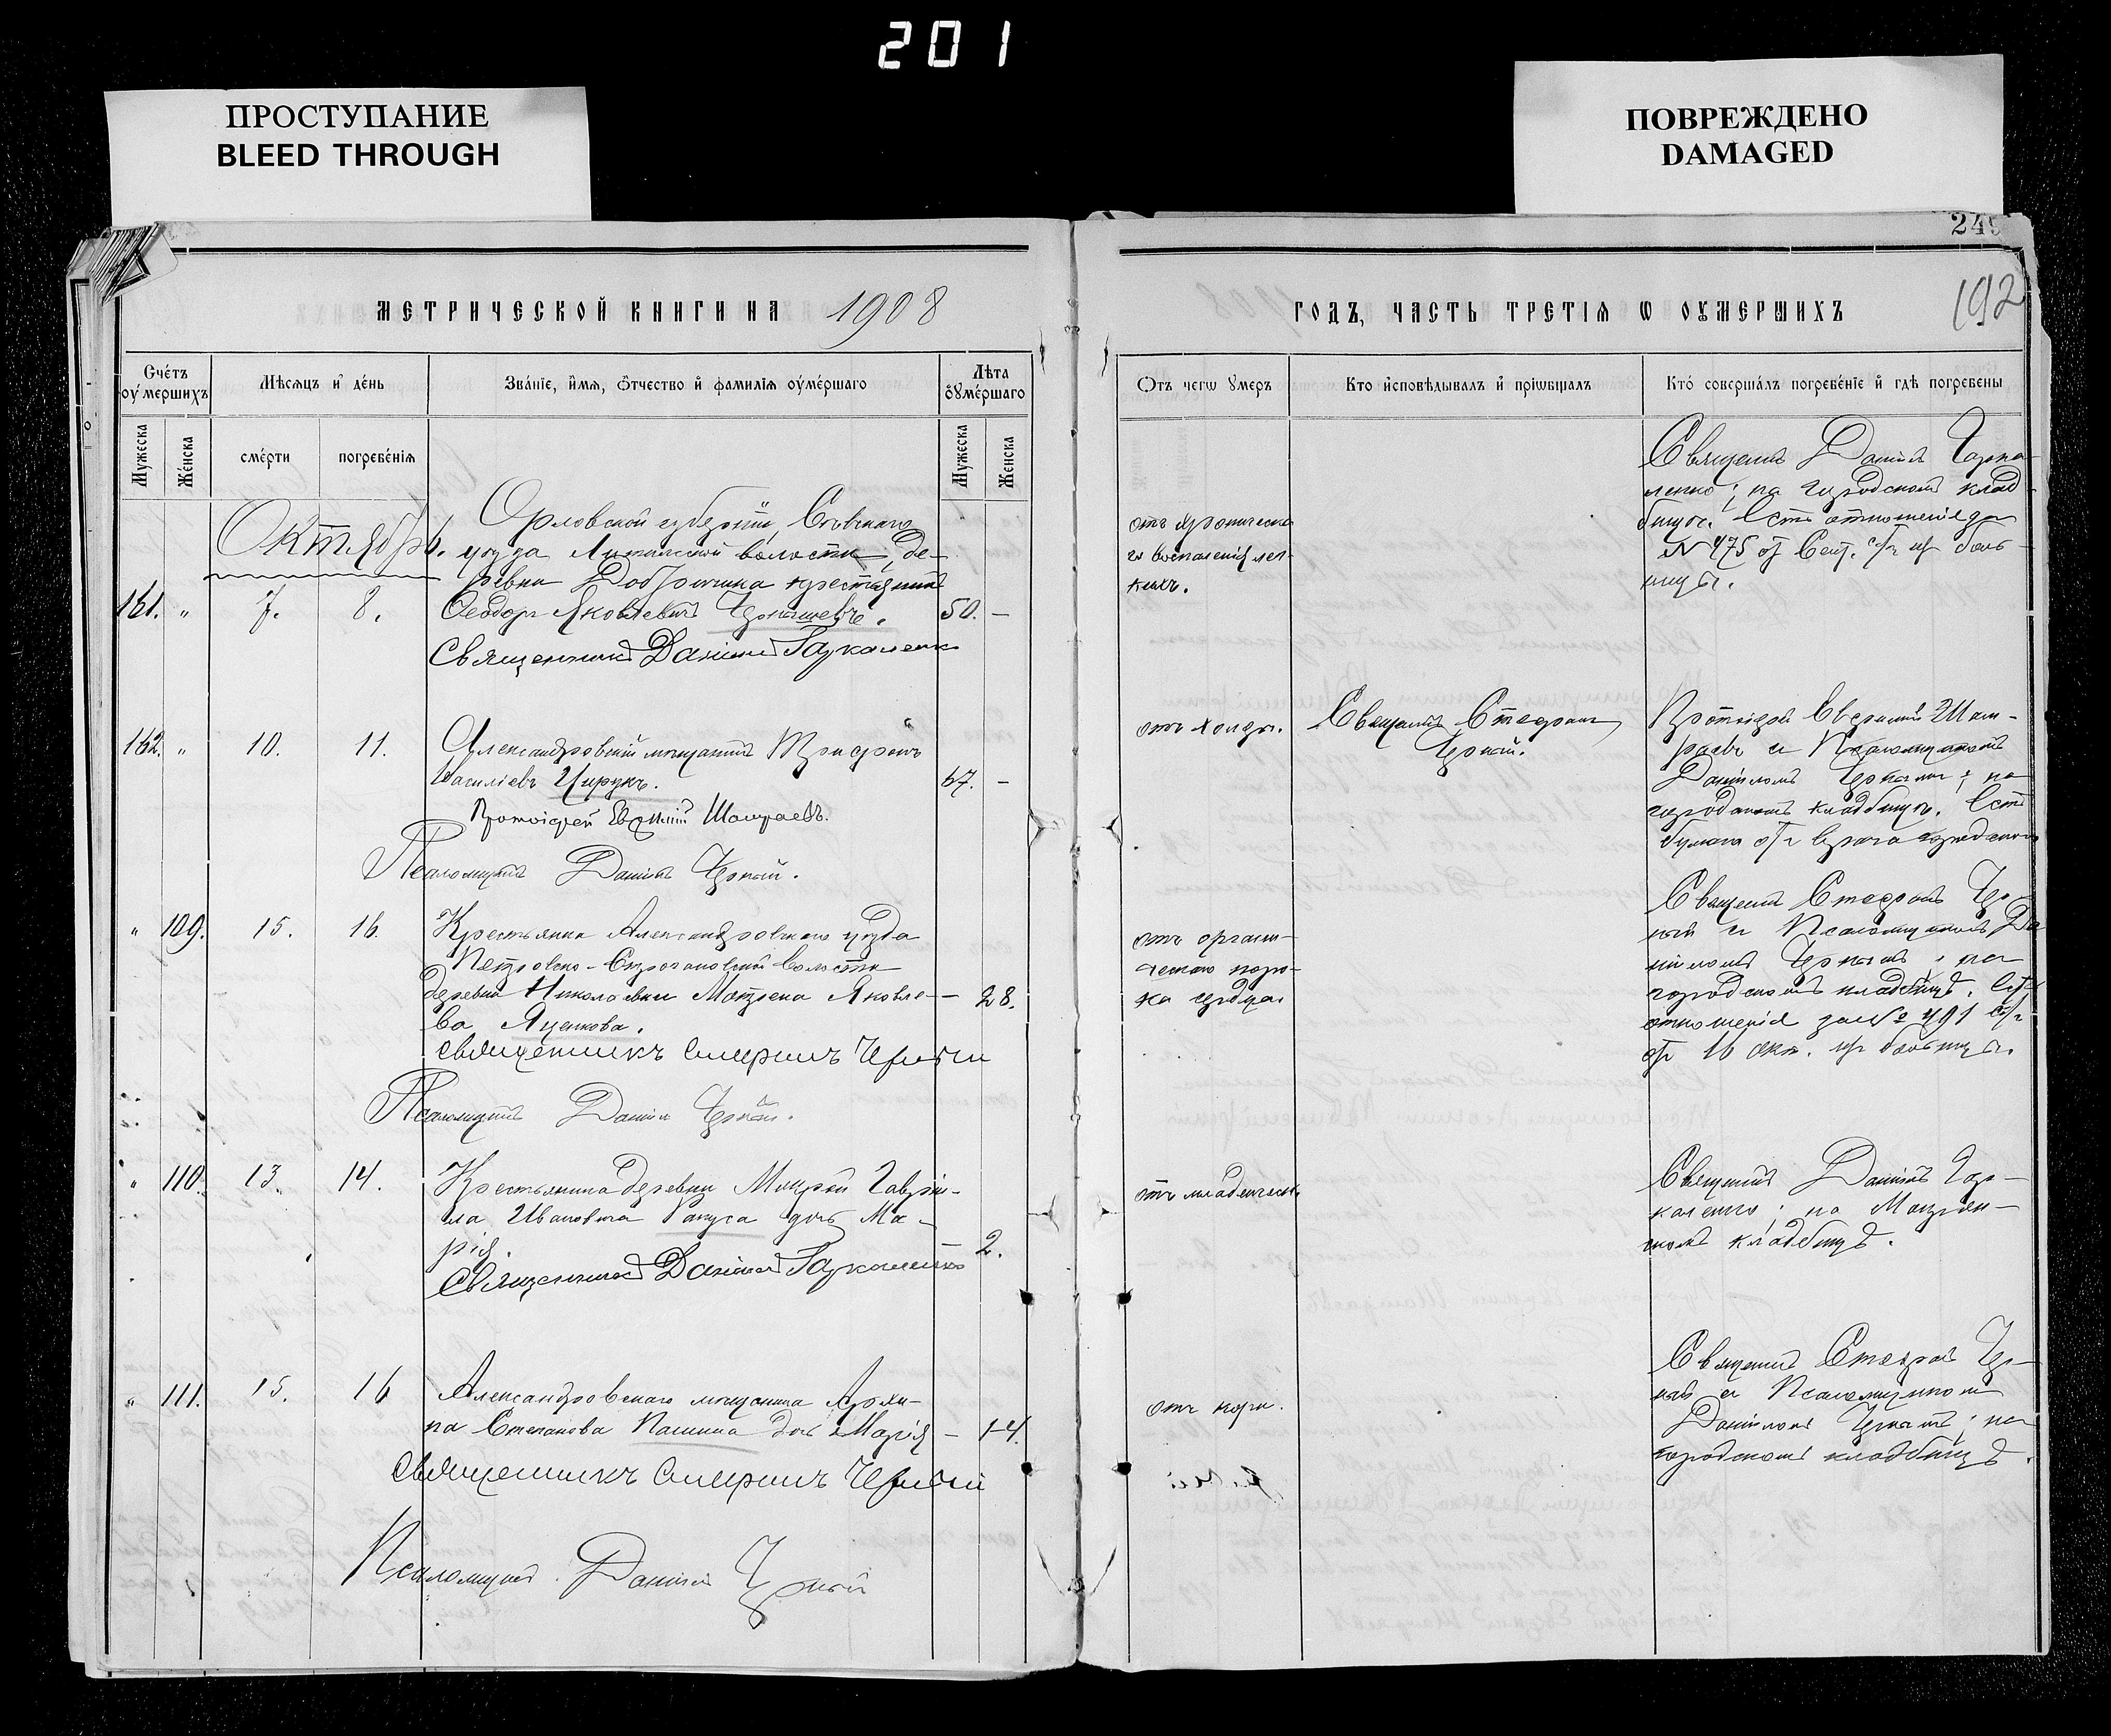 201
ПРОСТУПАНИЕ
BLEED THROUGH
ПОВРЕЖДЕНО
DAMAGED
249
192
МЕТРИЧЕСКОЙ КНИГИ НА 1908
ГОДЪ, ЧАСТЬ ТРЕТІѦ Ѡ ОУМЕРШИХЪ
Счéтъ оу́мершихъ
Мѣсяцъ и҆ де́нь
Зва́нїе, и҆́мя, ѻ҆́тчество и҆ фами́лїя оу҆ме́ршагѡ
Лѣта оу҆ме́ршаго
Мужеска
Же́нска
сме́рти
погребе́нїя
Мужеска
Женска
Отъ чегѡ умеръ
Кто и҆сповѣдывалъ и҆ прїѡбщалъ
Кто́ соверша́лъ погребе́нїе и҆ гдѣ погребены
Октябрь.
Орловской губерніи, Сѣвскаго
уѣзда волости, де-
ревни крестьянинъ
161. " 7. 8. Ѳеодоръ Яковлевичъ 50. —
Священникъ Даніилъ Гаркаленко
отъ хроническа-
го воспаленія лег-
кихъ.
Священникъ Даніилъ Гарка-
ленко; на городскомъ клад-
бищѣ. Есть отношеніе за
№ 475 отъ Сент. с/г из боль-
ницы.
162. " 10. 11. Александровскій мѣщанинъ Трифонъ
Василіевъ Цирукъ. 67. —
Протоіерей Евгеній Шампаевъ.
Псаломщикъ Даніилъ Черный.
отъ
Священникъ Стефанъ
Черный.
Протоіерей Евгеній Шам-
раевъ и Псаломщикомъ
Даніиломъ Чернымъ; на
городскомъ кладбищѣ. Есть
бумага отъ врача городского
" 109. 15. 16. Крестьянка Александровскаго уѣзда
Петровско- волости
деревни Николаевки Матрена Яковле- — 28.
ва Яценкова.
Священникъ Стефанъ Черный
Псаломщикъ Даніилъ Черный.
отъ органи-
ческаго поро-
ка сердца
Священникъ Стефанъ Чер-
ный и Псаломщикомъ Да-
ніиломъ Чернымъ; на
городскомъ кладбищѣ. Есть
отношеніе за № 491 с/г
отъ 16 окт. из больницы.
" 110. 13. 14. Крестьянина деревни Мокрой Гаврі-
ила Ивановича Гапуса дочь Ма-
рія. — 2.
Священникъ Даніилъ Гаркаленко
отъ младенческ.
Священникъ Даніилъ Гар-
каленко; на Мокрян-
скомъ кладбищѣ.
" 111. 15. 16 Александровскаго мѣщанина Архи-
па Степанова Пашина дочь Марія — 1-4.
Священникъ Стефанъ Черный
Псаломщикъ Даніилъ Черный
отъ кори.
Священникъ Стефанъ Чер-
ный и Псаломщикомъ
Даніиломъ Чернымъ; на
городскомъ кладбищѣ.